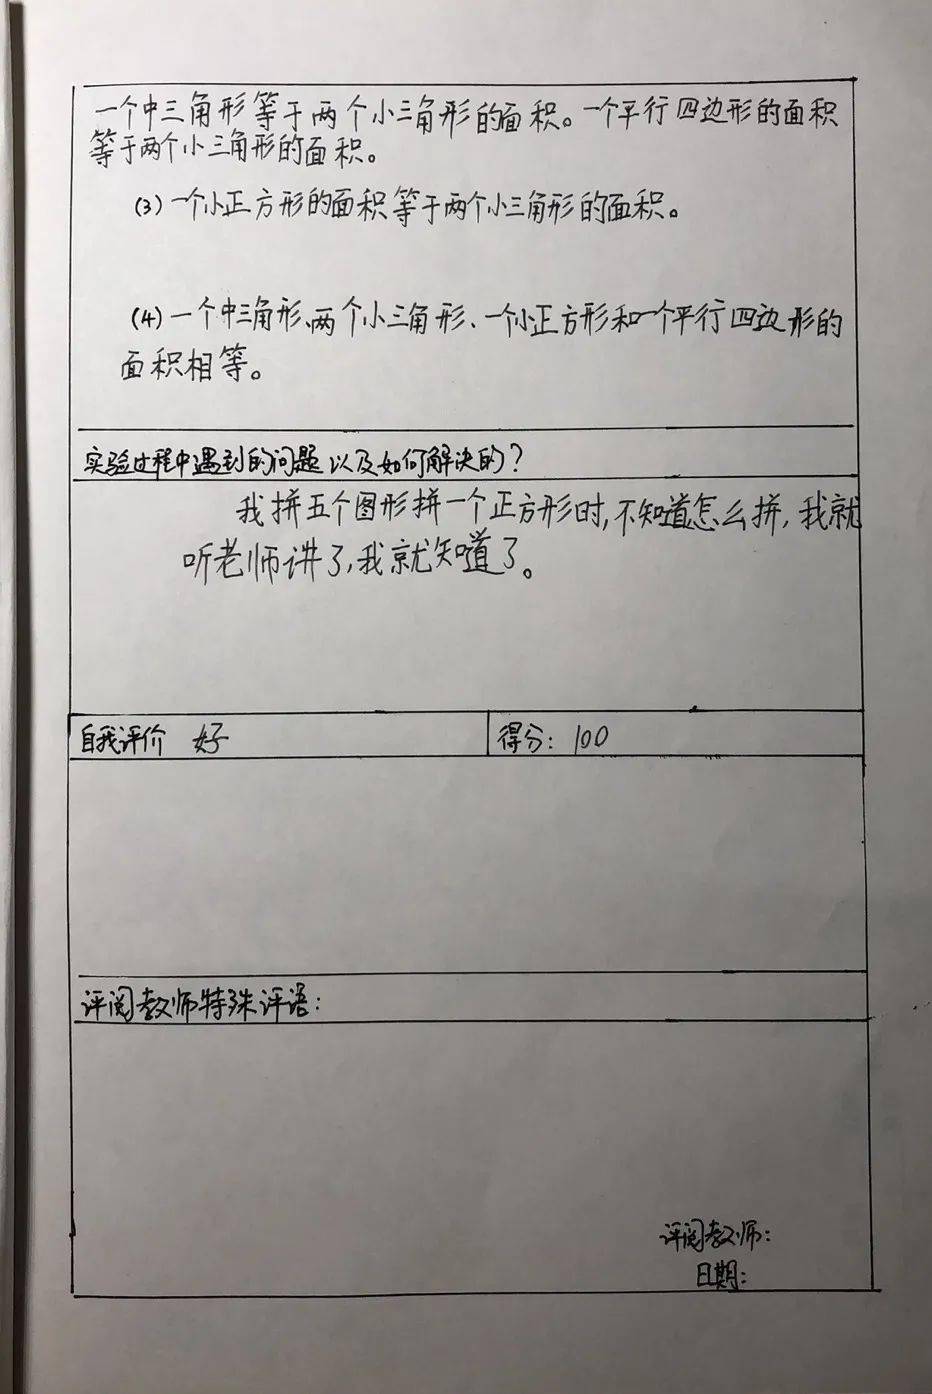 一个中三角形等于两个小三角形的面积。一个平行四边形的面积
等于两个小三角形的面积。
(3)一个小正方形的面积等于两个小三角形的面积。
(4)一个中三角形、两个小三角形、一个小正方形和一个平行四边形的
面积相等。
实验过程中遇到的问题以及如何解决的?
我拼五个图形拼一个正方形时,不知道怎么拼,我就
听老师讲了,我就知道了。
自我评价 好
得分: 100
评阅教师特殊评语:
评阅教师:
日期: